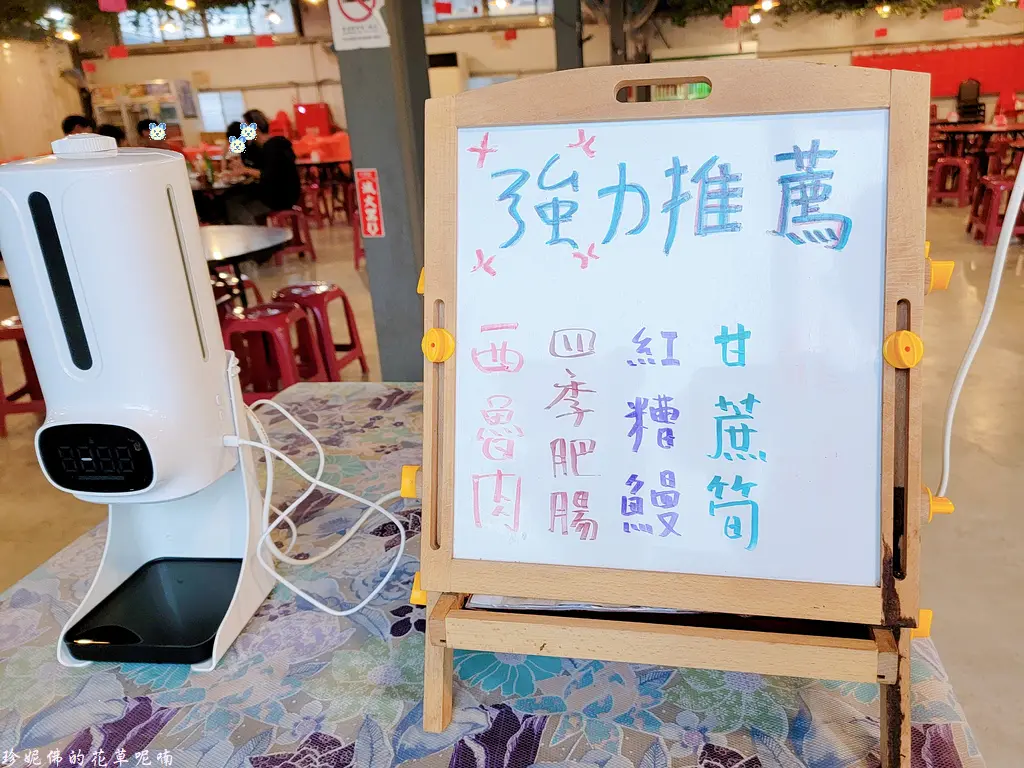 強力推薦
甘蔗筍
紅糟鰻
四季肥腸
西魯肉
滅火器
珍妮佛的花草呢喃